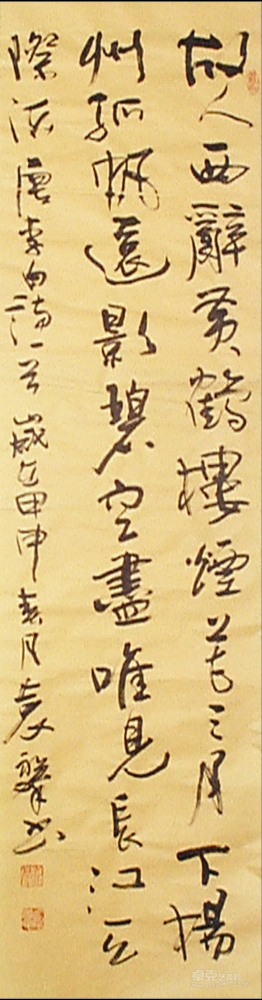 故人西辭黃鶴樓煙花三月下揚
州孤帆遠影碧空盡唯見長江天
際流唐李白詩一首歲在甲申春月袁書
卓克